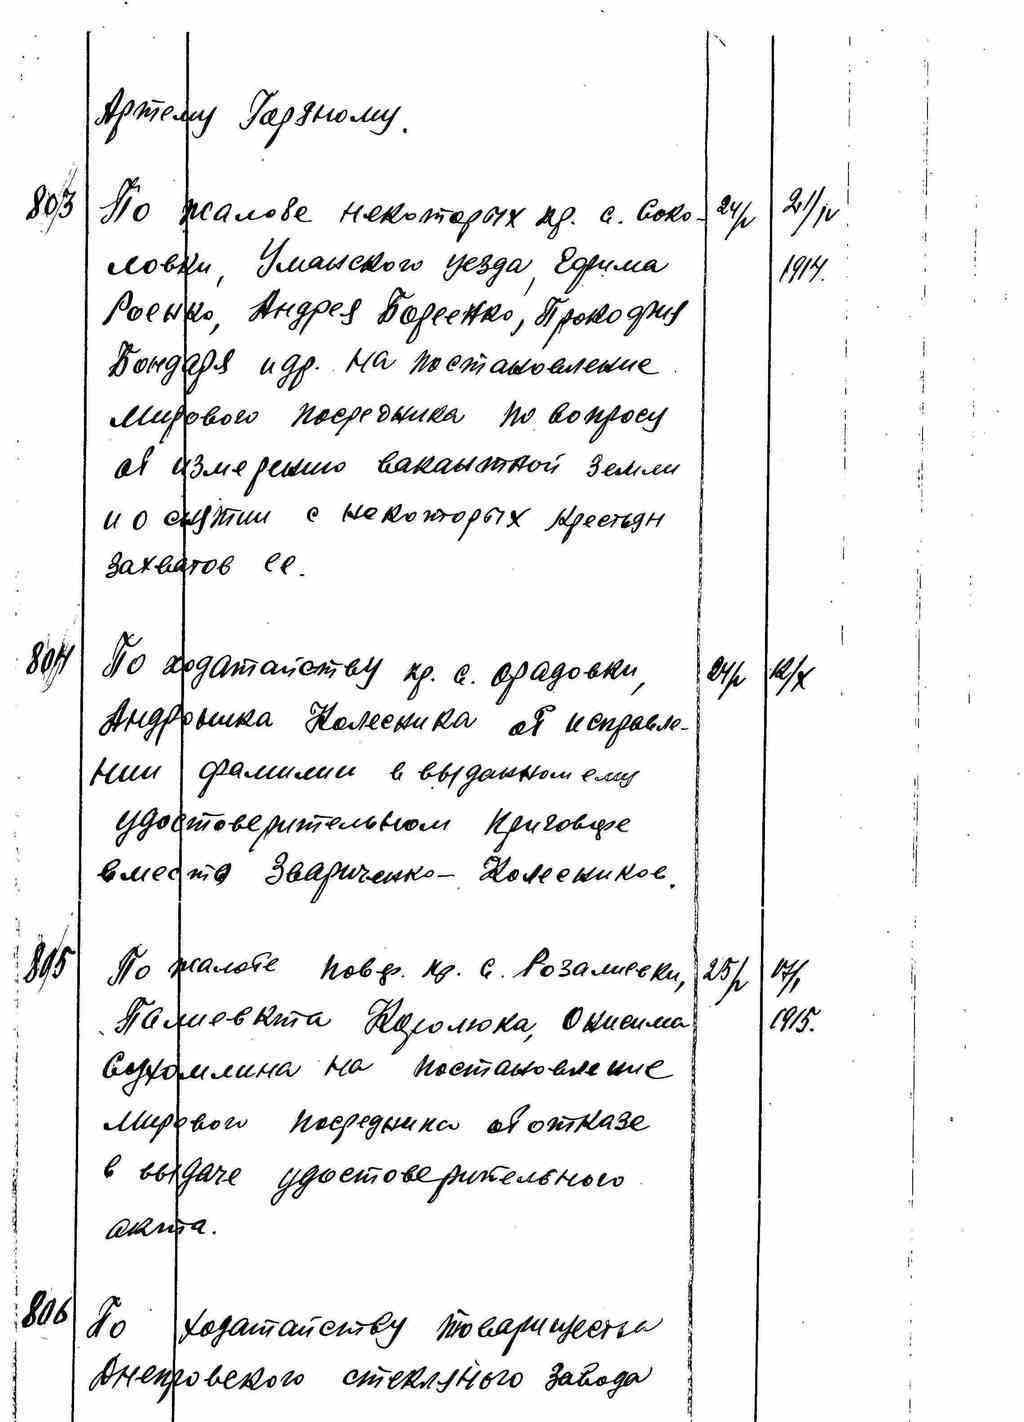 Артему Гаряному.
803 По жалобе некоторых кр. с. Соко- 24/V 21/IV
ловки, Уманского уезда, Ефрима 1914.
Роенко, Андрея Борсенко, Прокофия
Бондаря и др. на постановление
Мирового посредника по вопросу
об измерению вакантной земли
и о снятии с некоторых крестьян
захватов ее.
804 По ходатайству кр. с. Орадовки, 24/V 12/X
Андроника Колесника об исправле-
нии фамилии в выданном ему
удостоверительном приговоре
вместо Звариченко- Колесников.
805 По жалобе повер. кр. с. Розалиевки, 25/V 17/I
Палиевкта Королюка, Онисима 1915.
Сухомлина на постановление
Мирового посредника об отказе
в выдаче удостоверительного
акта.
806 По ходатайству товарищества
Днепровского стекляного завода